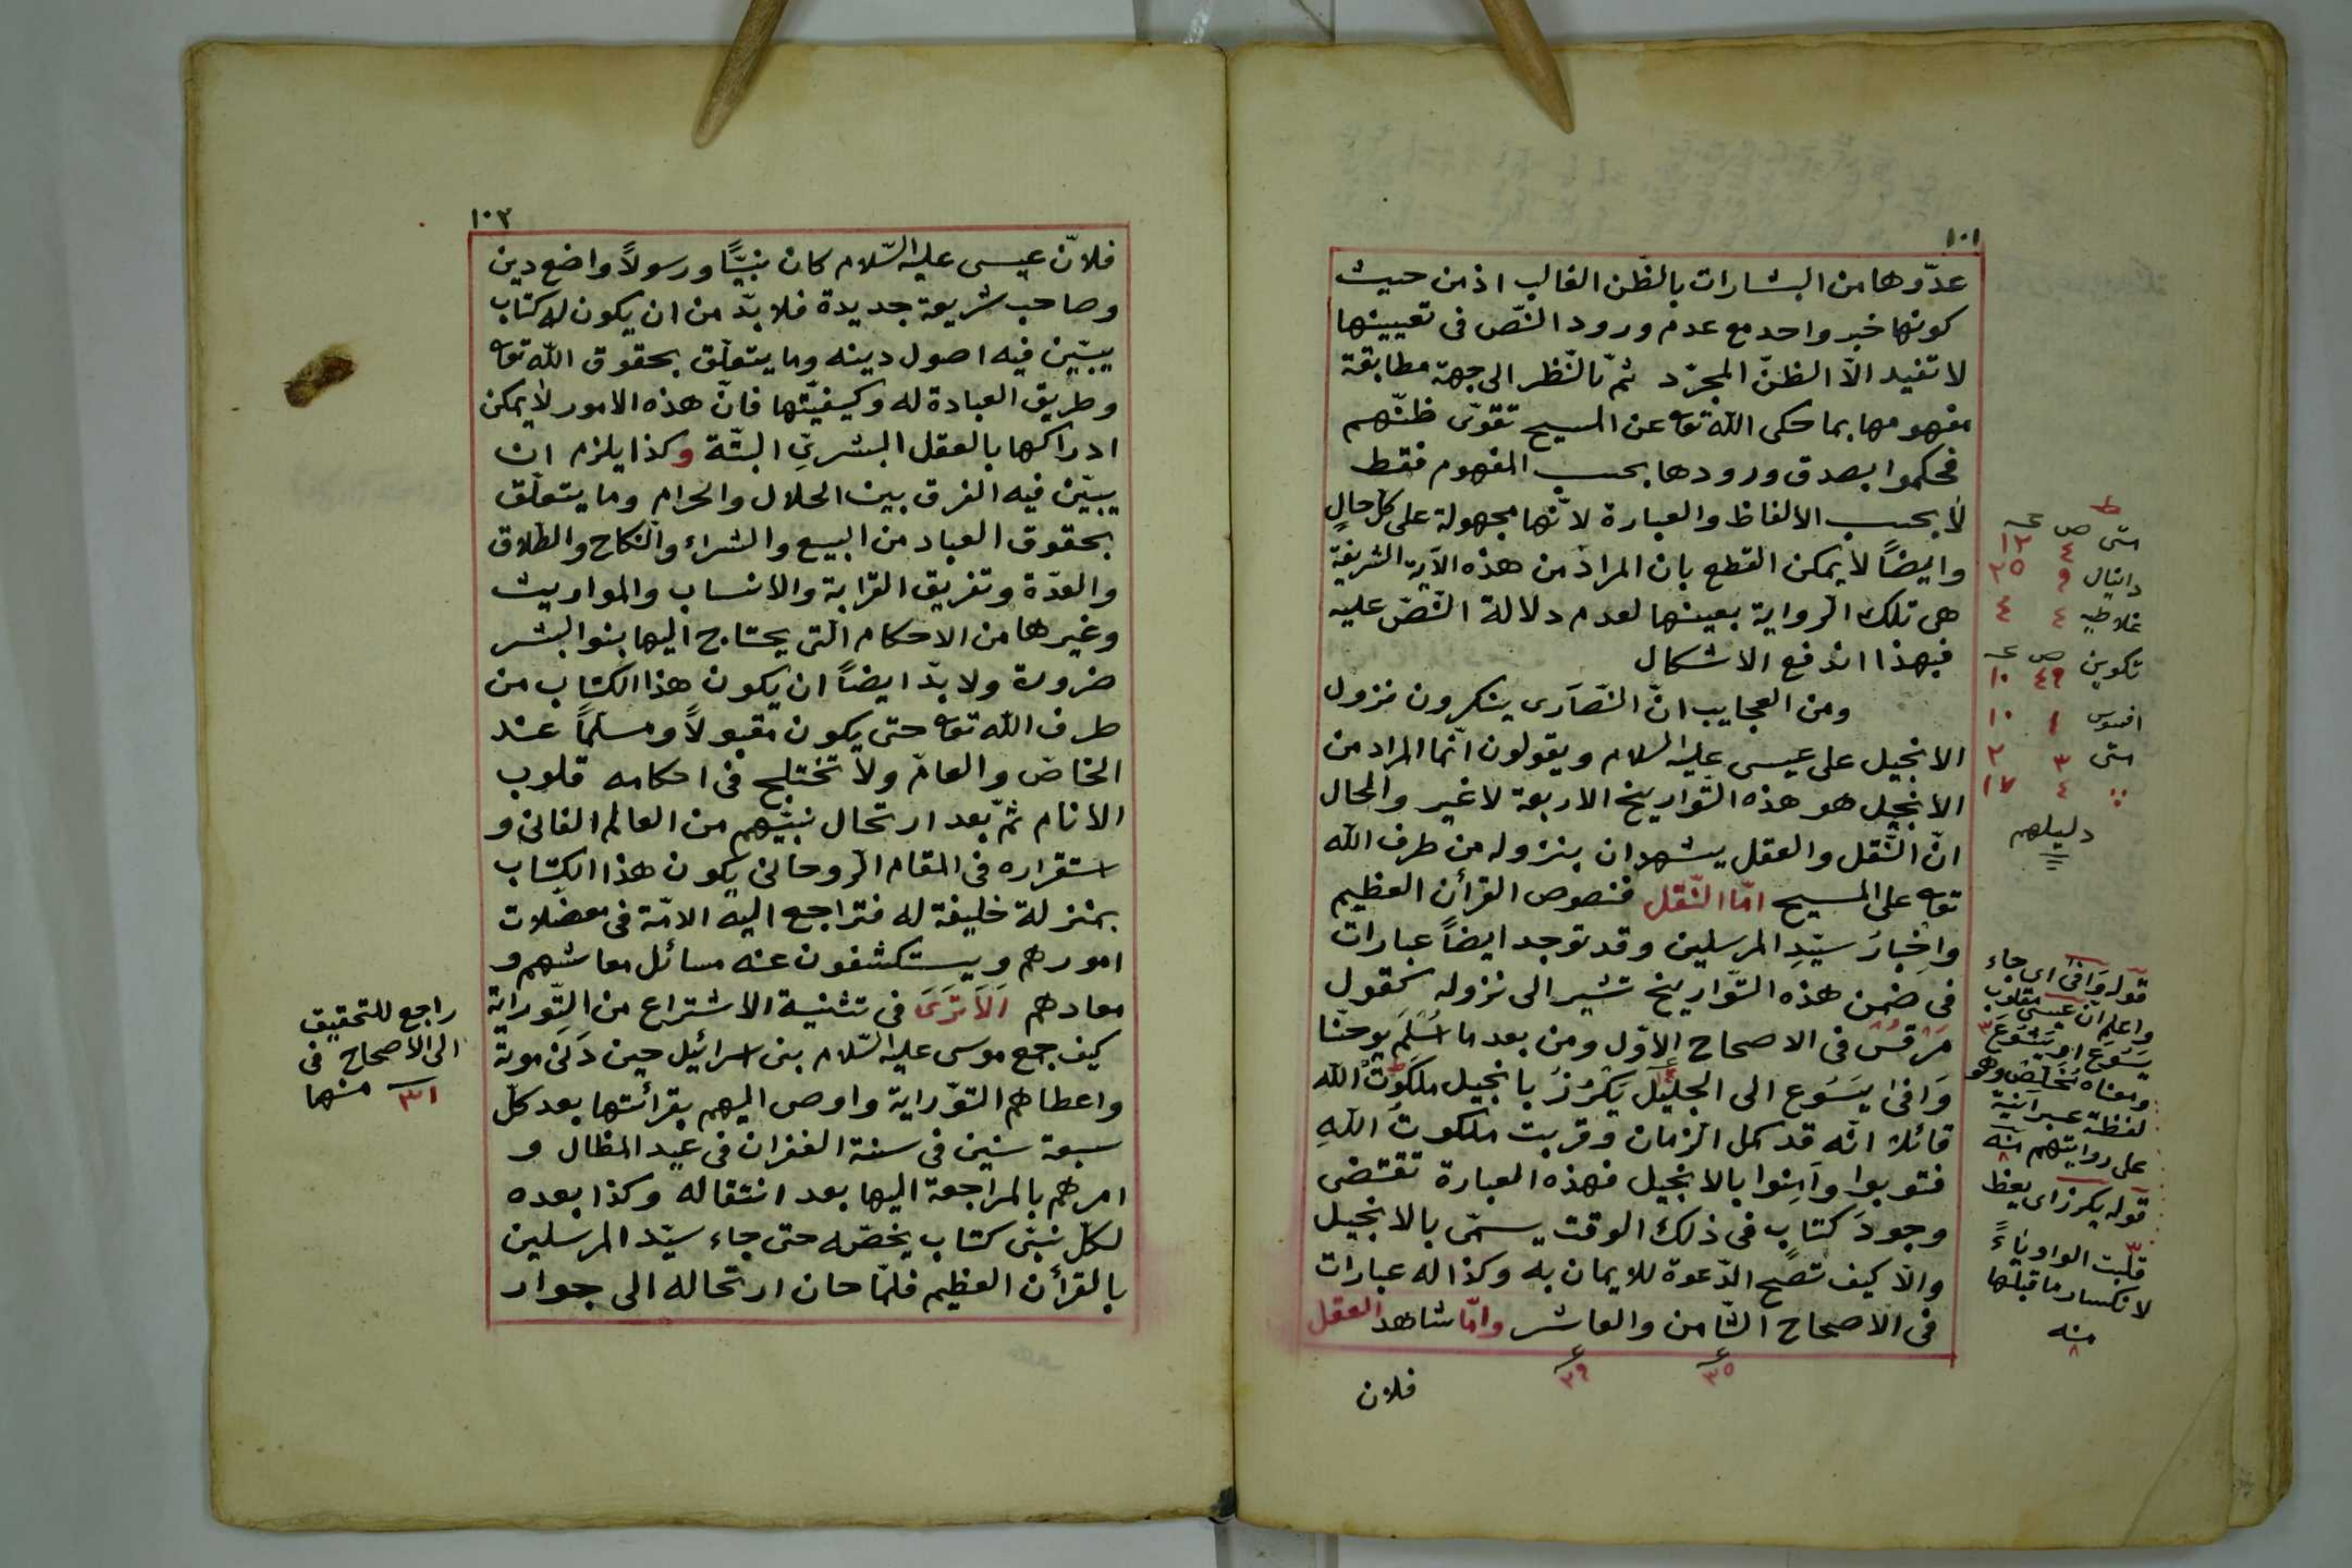 ١٠١
عدّوها من البشارات بالظّن الغالب اذ من حيث
كونها خبر واحد مع عدم ورود النّص فى تعيينها
لا تفيد الّا الظنّ المجرّد ثمّ بالنّظر الى جهة مطابقة
مفهومها بما حكى الله تعا عن المسيح تقوّى ظنّهم
فحكموا بصدق ورودها بحسب المفهوم فقط
لا بحسب الالفاظ والعبارة لانّها مجهولة على كلّ حالٍ
وايضاً لا يمكن القطع بان المراد من هذه الآية الشريفة
هى تلك الرّواية بعينها لعدم دلالة النّصّ عليه
فبهذا اندفع الاشكال
ومن العجايب انّ النّصَارَى ينكرون نزول
الانجيل على عيسى عليه السلام ويقولون انّما المراد من
الانجيل هو هذه التّواريخ الاربعة لا غير والحال
انّ النّقل والعقل يشهدان بنزوله من طرف الله
تعا على المسيح امّا النّقل فنصوص القرأن العظيم
واخبارُ سيّدِ المرسلين وقد توجد ايضاً عبارات
فى ضمن هذه التّواريخ تشير الى نزوله كقول
مَرْقُسْ فى الاصحاح الاوّل ومن بعد ما اُسْلِمَ يوحنّا
وَافىٰ يَسَوُع الى الجليل يَكْرُزُ بانجيل ملكوتُ الله
قائلا انّه قد كمل الزمان وقربت ملكوتُ اللهِ
فتوبوا وآمِنوا بالانجيل فهذه العبارة تقتضى
وجودَ كتاب فى ذلك الوقت يسمّى بالانجيل
والّا كيف تصحّ الدّعوة للايمان به وكذا له عبارات
فى الاصحاح الثّامن والعاشر وامّا شاهد العقل
ع ٣٥ ع ٢٩
فلان
ط
متى ص عـ
٤ ١٢
دانيال ٩ ٢٥
غلاطيه ٤ ٤
تكوين ص عـ
٤٩ ١٠
افسوس ١ ١٠
متى ٣ ٢
٤ ١٧
دليلهم
قوله وَافىٰ اى جاء
واعلم انّ عيسى مقلوب
يَسَوُع او يَشَوُع
ومعناه مُخَلّص وهو
لفظة عبرانية
على روايتهم منه
قوله يكرز اى يعظ
قلّبت الواو ياءً
لانكسار ما قبلها
منه
١٠٢
فلانّ عيسى عليه السّلام كان نبيًّا ورسولاً واضع دين
وصاحب شريعة جديدة فلا بدّ من ان يكون له كتاب
يبيّن فيه اصول دينه وما يتعلّق بحقوق الله تعا
وطريق العبادة له وكيفيّتها فانّ هذه الامور لا يمكن
ادراكها بالعقل البشرىِّ البتّة وكذا يلزم ان
يبيّن فيه الفرق بين الحلال والحرام وما يتعلّق
بحقوق العباد من البيع والشراء والنّكاح والطّلاق
والعدّة وتفريق القرابة والانساب والمواريث
وغيرها من الاحكام الّتى يحتاج اليها بنوا البشر
ضرورة ولا بدّ ايضاً ان يكون هذا الكتاب من
طرف الله تعا حتى يكون مقبولاً ومسلّماً عند
الخاصّ والعامّ ولا تختلج فى احكامه قلوب
الانام ثمّ بعد ارتحال نبيّهم من العالم الفانى و
استقراره فى المقام الرّوحانى يكون هذا الكتاب
بمنزلة خليفة له فتراجع اليه الامّة فى معضّلات
امورهم ويستكشفون عنه مسائل معاشهم و
معادهم اَلَا تَرَىَ فى تثنية الاشتراع من التّوراية
كيف جمع موسى عليه السّلام بنى اسرائيل حين دَنىٰ موته
واعطاهم التّوراية واوصى اليهم بقرائتها بعد كلّ
سبعة سنين فى سنة الغفران فى عيد المظال و
امرهم بالمراجعة اليها بعد انتقاله وكذا بعده
لكلّ نبىّ كتاب يخصّه حتى جاء سيّد المرسلين
بالقرأن العظيم فلمّا حان ارتحاله الى جوار
راجع للتحقيق
الى الاصحاح فى
٣١ منها